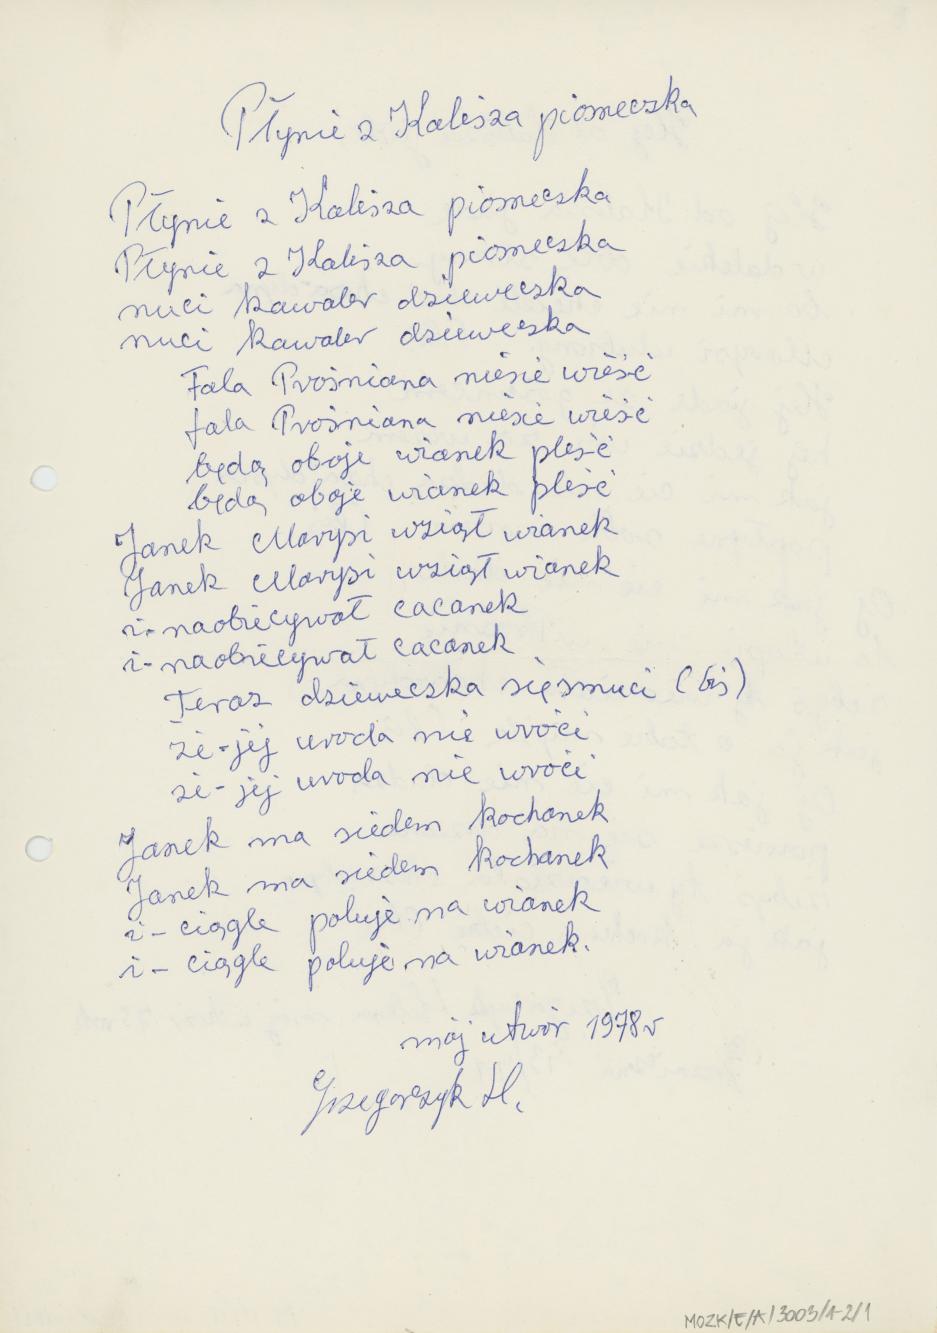 Płynie z Kalisza piosneczka
Płynie z Kalisza piosneczka
Płynie z Kalisza piosneczka
nuci kawaler dzieweczka
nuci kawaler dzieweczka
Fala Prośniana niesie wieść
fala Prośniana niesie wieść
będą oboje wianek pleść
będą oboje wianek pleść
Janek Marysi wziął wianek
Janek Marysi wziął wianek
i-naobiecywał cacanek
i-naobiecywał cacanek
Teraz dzieweczka się smuci (bis)
że-jej uroda nie wróci
że-jej uroda nie wróci
Janek ma siedem kochanek
Janek ma siedem kochanek
i-ciągle poluje na wianek
i-ciągle poluje na wianek.
mój utwór 1978 r
Grzegorczyk H.
MOZK/E/A/3003/1-2/1